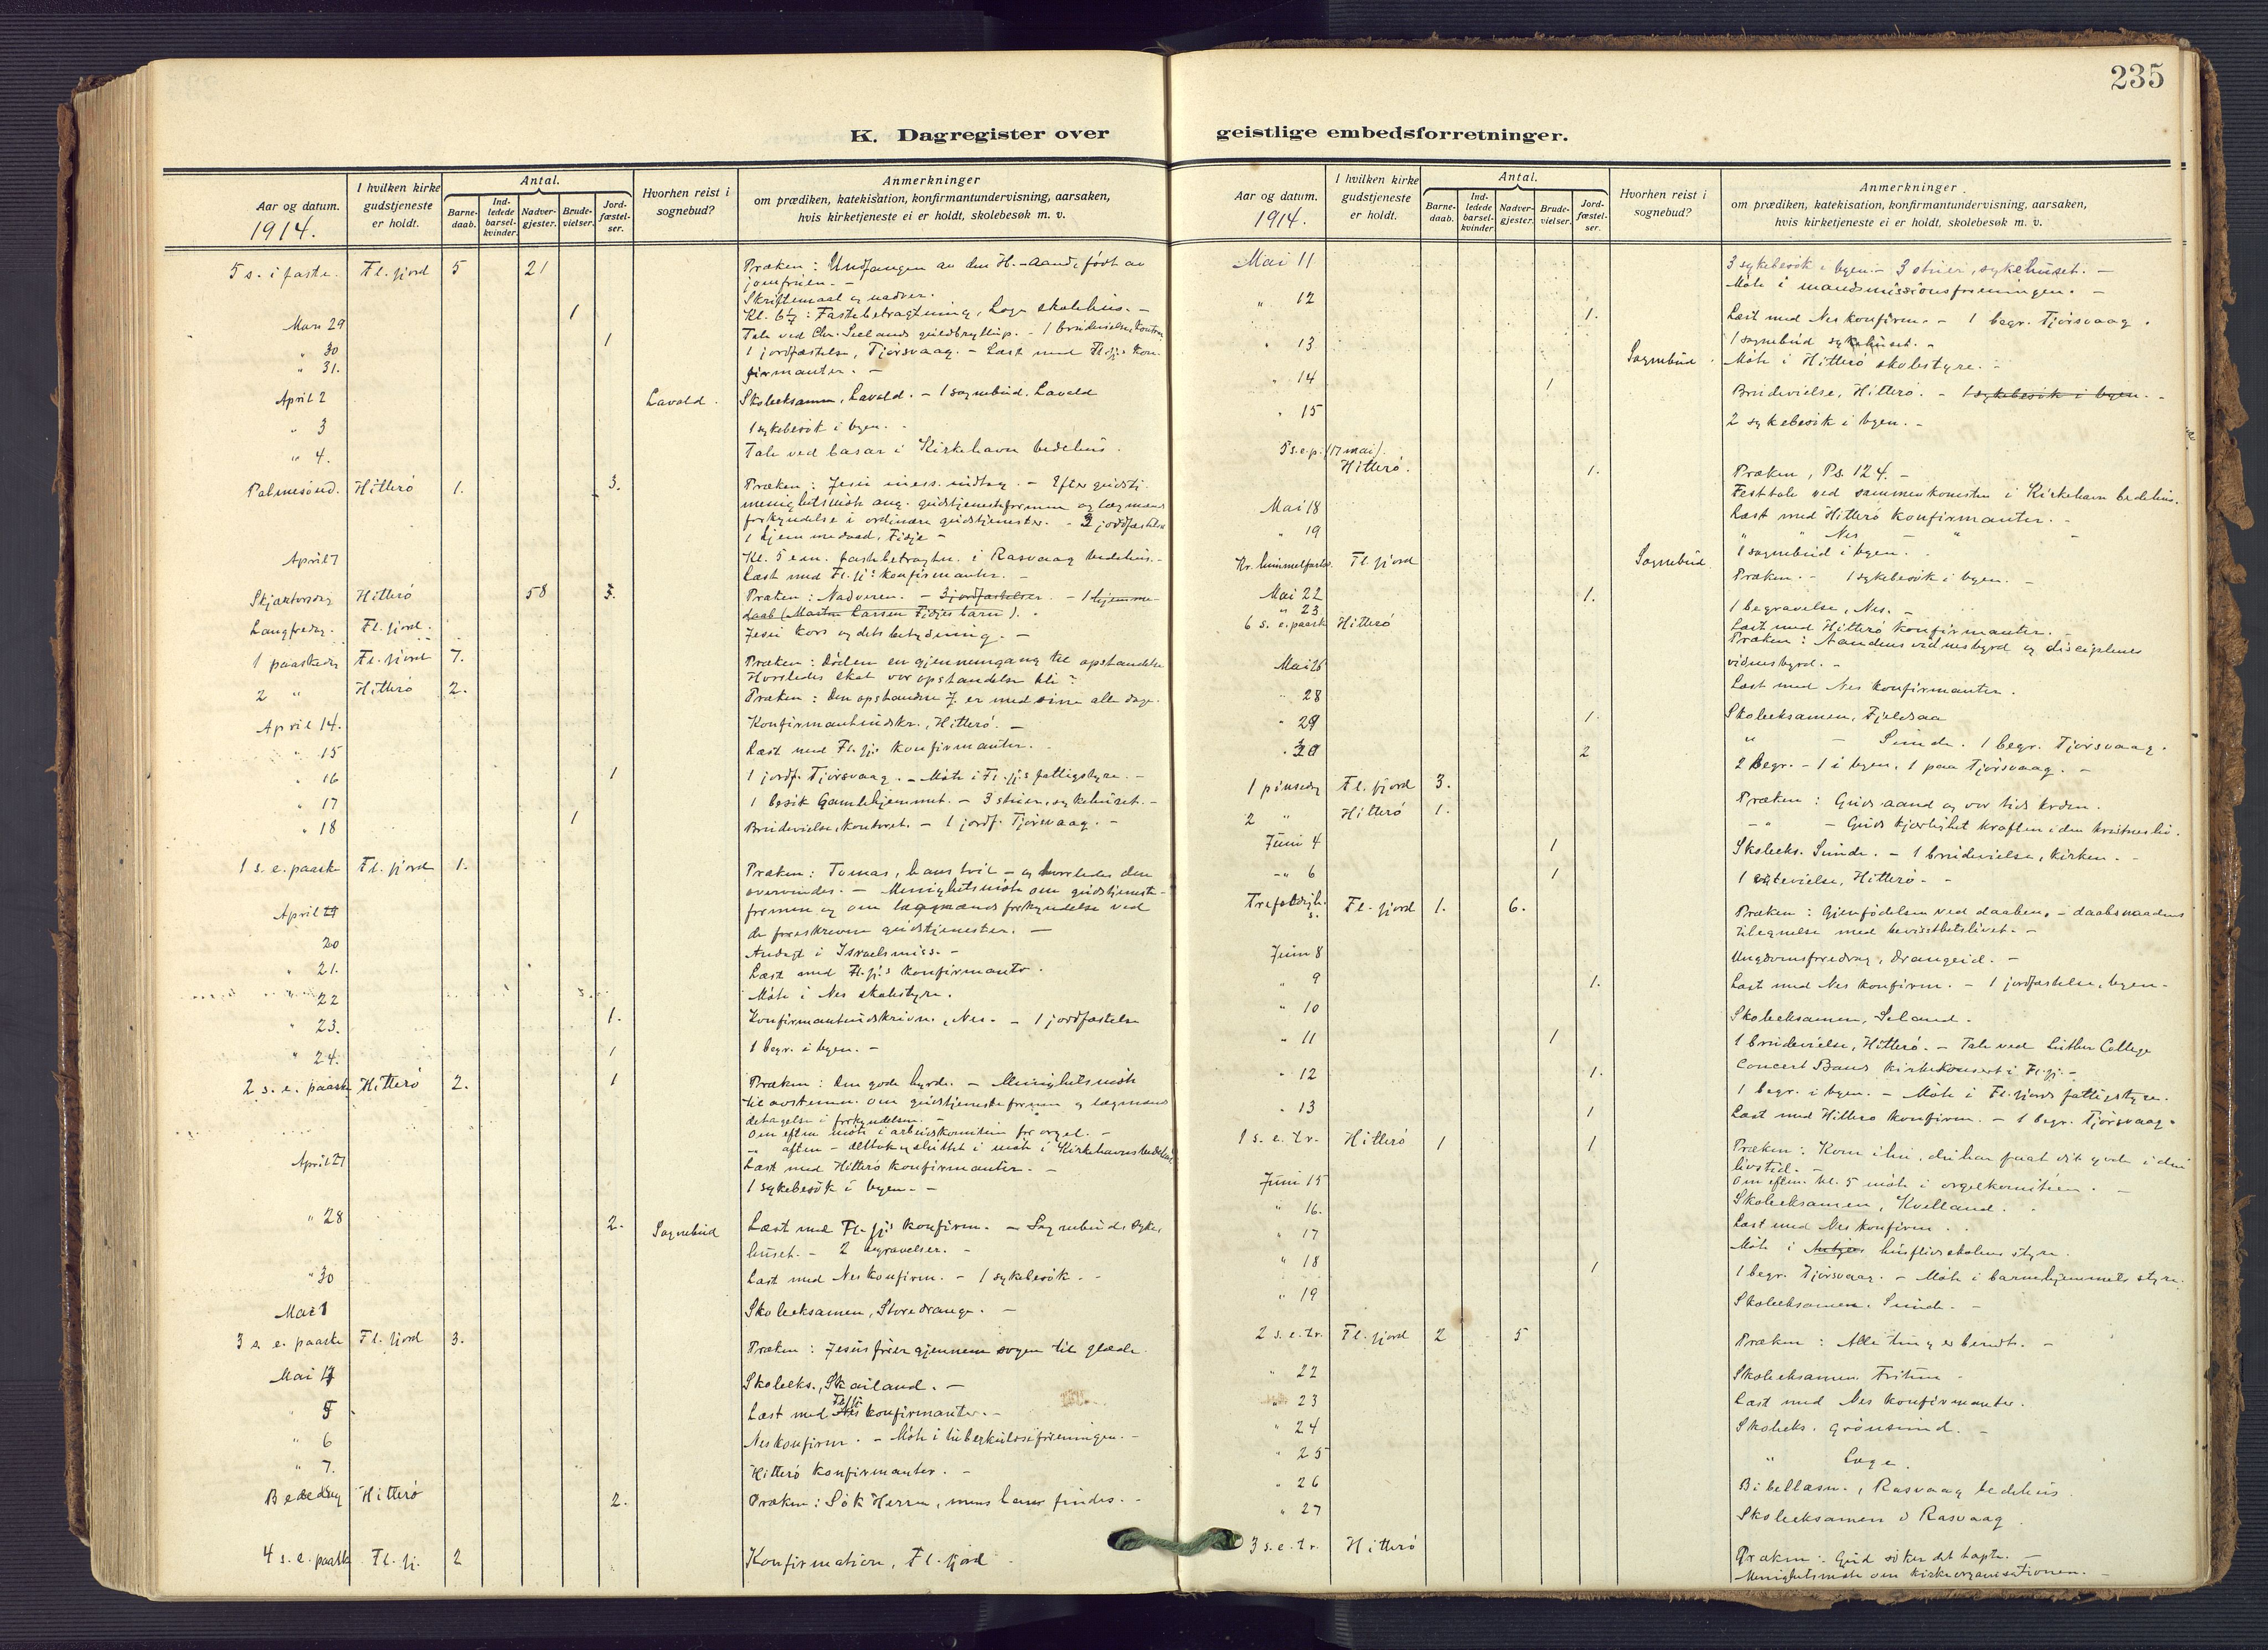 235
K. Dagregister over
Aar og datum.
1914.
I hvilken kirke gudstjeneste er holdt.
Antal.
Barne-daab.
Ind-ledede barsel-kvinder.
Nadver-gjester.
Brude-vielser.
Jord-fæstel-ser.
Hvorhen reist i sognebud?
Anmerkninger
om prædiken, katekisation, konfirmantundervisning, aarsaken,
hvis kirketjeneste ei er holdt, skolebesøk m. v.
5 s. i faste. Fl. fjord 5 21 Præken: Undfangen av den H.-Aand, født av
jomfruen. -
Skriftemaal og nadver.
1 Kl. 6½: Fastebetragtning, Loge skolehus. -
Mars 29 Tale ved Chr. Seelands guldbryllup. - 1 brudevielse, kontoret
" 30 1 1 jordfæstelse, Tjørsvaag. - Læst med Fl.fj.s kon-
" 31. firmanter. -
April 2 Lavold. Skoleeksamen, Lavold. - 1 sognebud, Lavold
" 3 1 sykebesøk i byen. -
" 4. Tale ved basar i Kirkehavn bedehus.
Palmesønd. Hitterø 1. 3. Præken: Jesu mess. indtog. - Efter gudstj.
menighetsmøte ang. gudstjenesteformen og lægmans
forkyndelse i ordinære gudstjenester. - 3 jordfæstelser
1 hjemmedaab, Fidje -
April 7 Kl. 5 em. fastebetragtn. i Rasvaag bedehus. -
Læst med Fl.fj.s konfirmanter. -
Skjærtorsdag Hitterø 58 3. Præken: Nadveren. - 3 jordfæstelser. - 1 hjemme-
daab (Martin Larsen Fidjes barn).
Langfredag. Fl. fjord. Jesu kors og dets betydning. -
1 paaskedag Fl. fjord 7. Præken: Døden en gjennemgang til opstandelse
Hvorledes skal vor opstandelse bli?
2 " Hitterø 2. Præken: Den opstandne J. er med sine alle dage.
April 14. Konfirmantindskr., Hitterø. -
" 15 Læst med Fl.fj.s konfirmanter.
" 16 1 1 jordf. Tjørsvaag. - Møte i Fl.fj.s fattigstyre. -
" 17 1 besøk Gamlehjemmet. - 3 stuer, sykehuset. -
" 18 1 Brudevielse, kontoret. - 1 jordf. Tjørsvaag. -
1 s. e. paaske Fl. fjord 1. Præken: Tomas, hans tvil - og hvorledes den
overvindes. - Menighetsmøte om gudstjeneste-
April formen og om lægmands forkyndelse ved
de foreskrevne gudstjenester. -
20 Andagt i Israelsmiss. -
" 21. Læst med Fl.fj.s konfirmanter.
" 22 Møte i Nes skolestyre.
" 23. 1. Konfirmantindskrivn., Nes. - 1 jordfæstelse
" 24. 1 1 begr. i byen. -
2 s. e. paaske Hitterø 2. 1 Præken: Den gode hyrde. - Menighetsmøte
til avstemn. om gudstjenesteformen og lægmans
deltagelse i forkyndelsen. -
Om eftm møte i arbeidskomiteen for orgel. -
" aften - deltok og sluttet i møte i Kirkehavns bedehus
April 27 Læst med Hitterø konfirmanter. -
1 sykebesøk i byen. -
" 28 2. Sognebud Læst med Fl.fj.s konfirm. - Sognebud, syke-
huset. - 2 begravelser. -
" 30 Læst med Nes konfirm. - 1 sykebesøk. -
Mai 1 Skoleeksamen, Store drange. -
3 s. e. paaske Fl. fjord 3. Præken: Jesus fører gjennem sorgen til glæde.
Mai 4 Skoleeks., Skailand. -
" 5 Læst med Fl.fj. konfirmanter. -
" 6 Nes konfirm. - Møte i tuberkuloseforeningen. -
" 7. Hitterø konfirmanter. -
Bededag Hitterø 2. Præken: Søk Herren, mens han findes. -
4 s. e. paaske Fl. fj. 2 Konfirmation, Fl. fjord
geistlige embedsforretninger.
Aar og datum.
1914.
I hvilken kirke gudstjeneste er holdt.
Antal.
Barne-daab.
Ind-ledede barsel-kvinder
Nadver-gjester.
Brude-vielser.
Jord-fæstel-ser.
Hvorhen reist i sognebud?
Anmerkninger
om prædiken, katekisation, konfirmantundervisning, aarsaken,
hvis kirketjeneste ei er holdt, skolebesøk m. v.
Mai 11 3 sykebesøk i byen. - 3 stuer, sykehuset. -
Møte i mandsmissionsforeningen. -
" 12 1. Læst med Nes konfirm. - 1 begr. Tjørsvaag.
" 13 Sognebud. 1 sognebud sykehuset. -
Møte i Hitterø skolestyre. -
" 14 1 Brudevielse, Hitterø. - 1 sykebesøk i byen. -
" 15 2 sykebesøk i byen. -
5 s.e.p. (17 mai).
Hitterø. 1. Præken, Ps. 124. -
Festtale ved sammenkomsten i Kirkehavn bedehus.
Mai 18 Læst med Hitterø konfirmanter. -
" 19 " " Nes " -
Sognebud 1 sognebud i byen.
Kr. himmelfartsd. Fl. fjord Præken. - 1 sykebesøk i byen. -
Mai 22 1. 1 begravelse, Nes. -
" 23 Læst med Hitterø konfirmanter. -
6 s. e. paaske Hitterø Præken: Aandens vidnesbyrd og disciplenes
vidnesbyrd. -
Mai 26 Læst med Nes konfirmanter.
" 28 Skoleeksamen, Fjeldsaa
" 29 1. " - Sunde. 1 begr. Tjørsvaag.
" 30 2 2 begr. - 1 i byen, 1 paa Tjørsvaag. -
1 pinsedag Fl. fjord 3. Præken: Guds aand og vor tids krden.
2 " Hitterø 1. - " - Guds kjærlighet kraften i den kristnes liv.
Juni 4 1 Skoleeks. Sunde. - 1 brudevielse, kirken. -
- " 6 1 1 egtevielse, Hitterø. -
Trefoldigh. s. Fl. fjord 1. 6. Præken: Gjenfødelsen ved daaben, - daabsnaadens
tilegnelse med bevissthetslivet. -
Juni 8 Ungdomsforedrag, Drangeid. -
" 9 1. Læst med Nes konfirm. - 1 jordfæstelse, byen. -
" 10 Skoleeksamen, Seland.
" 11 1 1 brudevielse, Hitterø. - Tale ved Luther College
Concert Bands kirkekonsert i Fl.fj. -
" 12 1. 1 begr. i byen. - Møte i Fl.fjords fattigstyre.
" 13 1 Læst med Hitterø konfirm. - 1 begr. Tjørsvaag.
1 s. e. tr. Hitterø 1 1 Præken: Kom ihu, du har faat dit gode i din
livstid. -
Om eftm. kl. 5 møte i orgelkomiteen. -
Juni 15 Skoleeksamen, Kvelland.
" 16. Læst med Nes konfirm.
" 17 Møte i husflidsskolens styre.
" 18 1 1 begr. Tjørsvaag. - Møte i barnehjemmets styre.
" 19 Skoleeksamen. Sunde. -
2 s. e. tr. Fl. fjord 2 5 Præken: Alle ting er beredt. -
" 22 Skoleeksamen -
" 23 Læst med Nes konfirmanter.
" 24 Skoleeks. Grønsund. -
" 25 " Loge.
" 26 Bibellæsn., Rasvaag bedehus
" 27 Skoleeksamen Rasvaag
3 s. e. tr. Hitterø Præken: Gud søker det tapte. -
Menighetsmøte om kirkeorganisationen. -